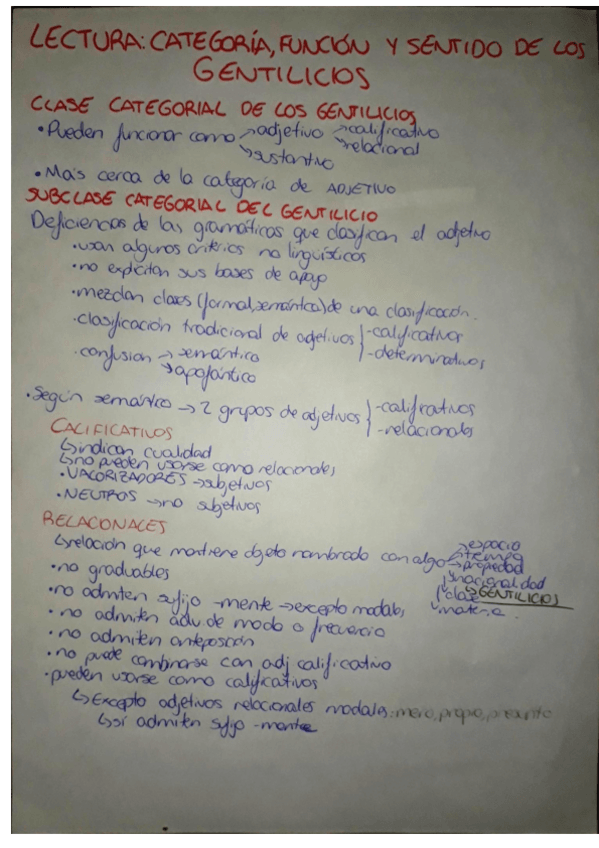 LECTURA: CATEGORÍA, FUNCIÓN Y SENTIDO DE LOS
GENTILICIOS
CLASE CATEGORIAL DE LOS GENTILICIOS
• Pueden funcionar como → adjetivo → calificativo
→ relacional
→ sustantivo
• Más cerca de la categoría de ADJETIVO
SUBCLASE CATEGORIAL DEL GENTILICIO
Deficiencias de las gramáticas que clasifican el adjetivo
• usan algunos criterios no lingüísticos
• no explicitan sus bases de apoyo
• mezclan clases (formal, semántica) de una clasificación.
• clasificación tradicional de adjetivos } - calificativos
- determinativos
• confusión → semántico
→ apofántico
• Según semántico → 2 grupos de adjetivos } - calificativos
- relacionales
CALIFICATIVOS
↳ indican cualidad
↳ no pueden usarse como relacionales
• VALORIZADORES → subjetivos
• NEUTROS → no subjetivos
RELACIONALES
↳ relación que mantiene objeto nombrado con algo → espacio
→ tiempo
→ propiedad
↘ nacionalidad
↳ GENTILICIOS
↘ clase
↘ materia
• no graduables
• no admiten sufijo -mente → excepto modales
• no admiten adv de modo o frecuencia
• no admiten anteposición
• no puede combinarse con adj calificativo
• pueden usarse como calificativos
↳ Excepto adjetivos relacionales modales: mero, propio, presunto
↳ sí admiten sufijo -mente